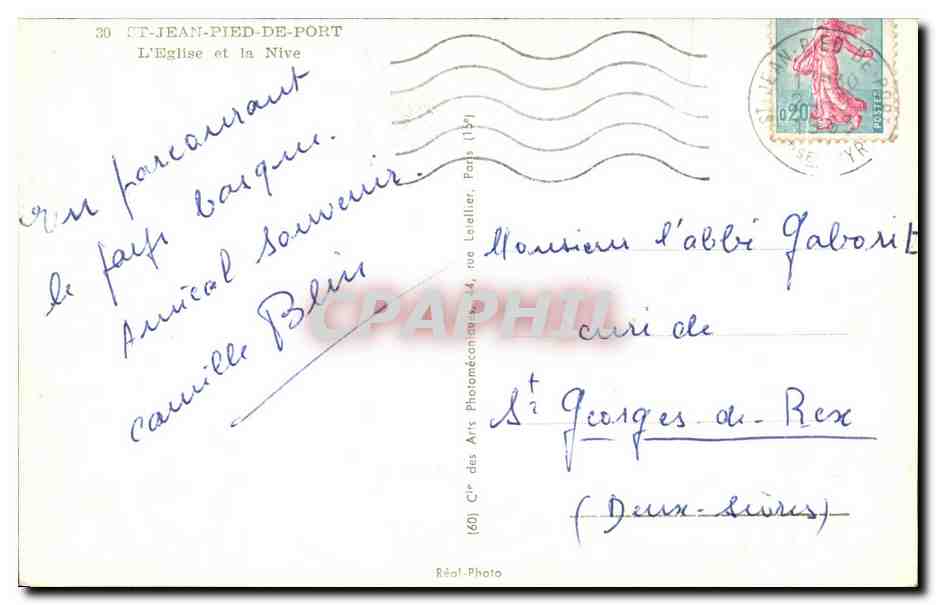 30 ST-JEAN-PIED-DE-PORT
L'Eglise et la Nive
En parcourant
le pays basque.
Amical souvenir.
Camille Blin
(60) Cie des Arts Photomécaniques, 44, rue Letellier, Paris (15e)
ST JEAN-PIED DE PORT
0,20
POSTES
Monsieur l'abbé Gaborit
curé de
St Georges-de-Rex
(Deux-Sèvres)
Réal-Photo
CPAPHIL